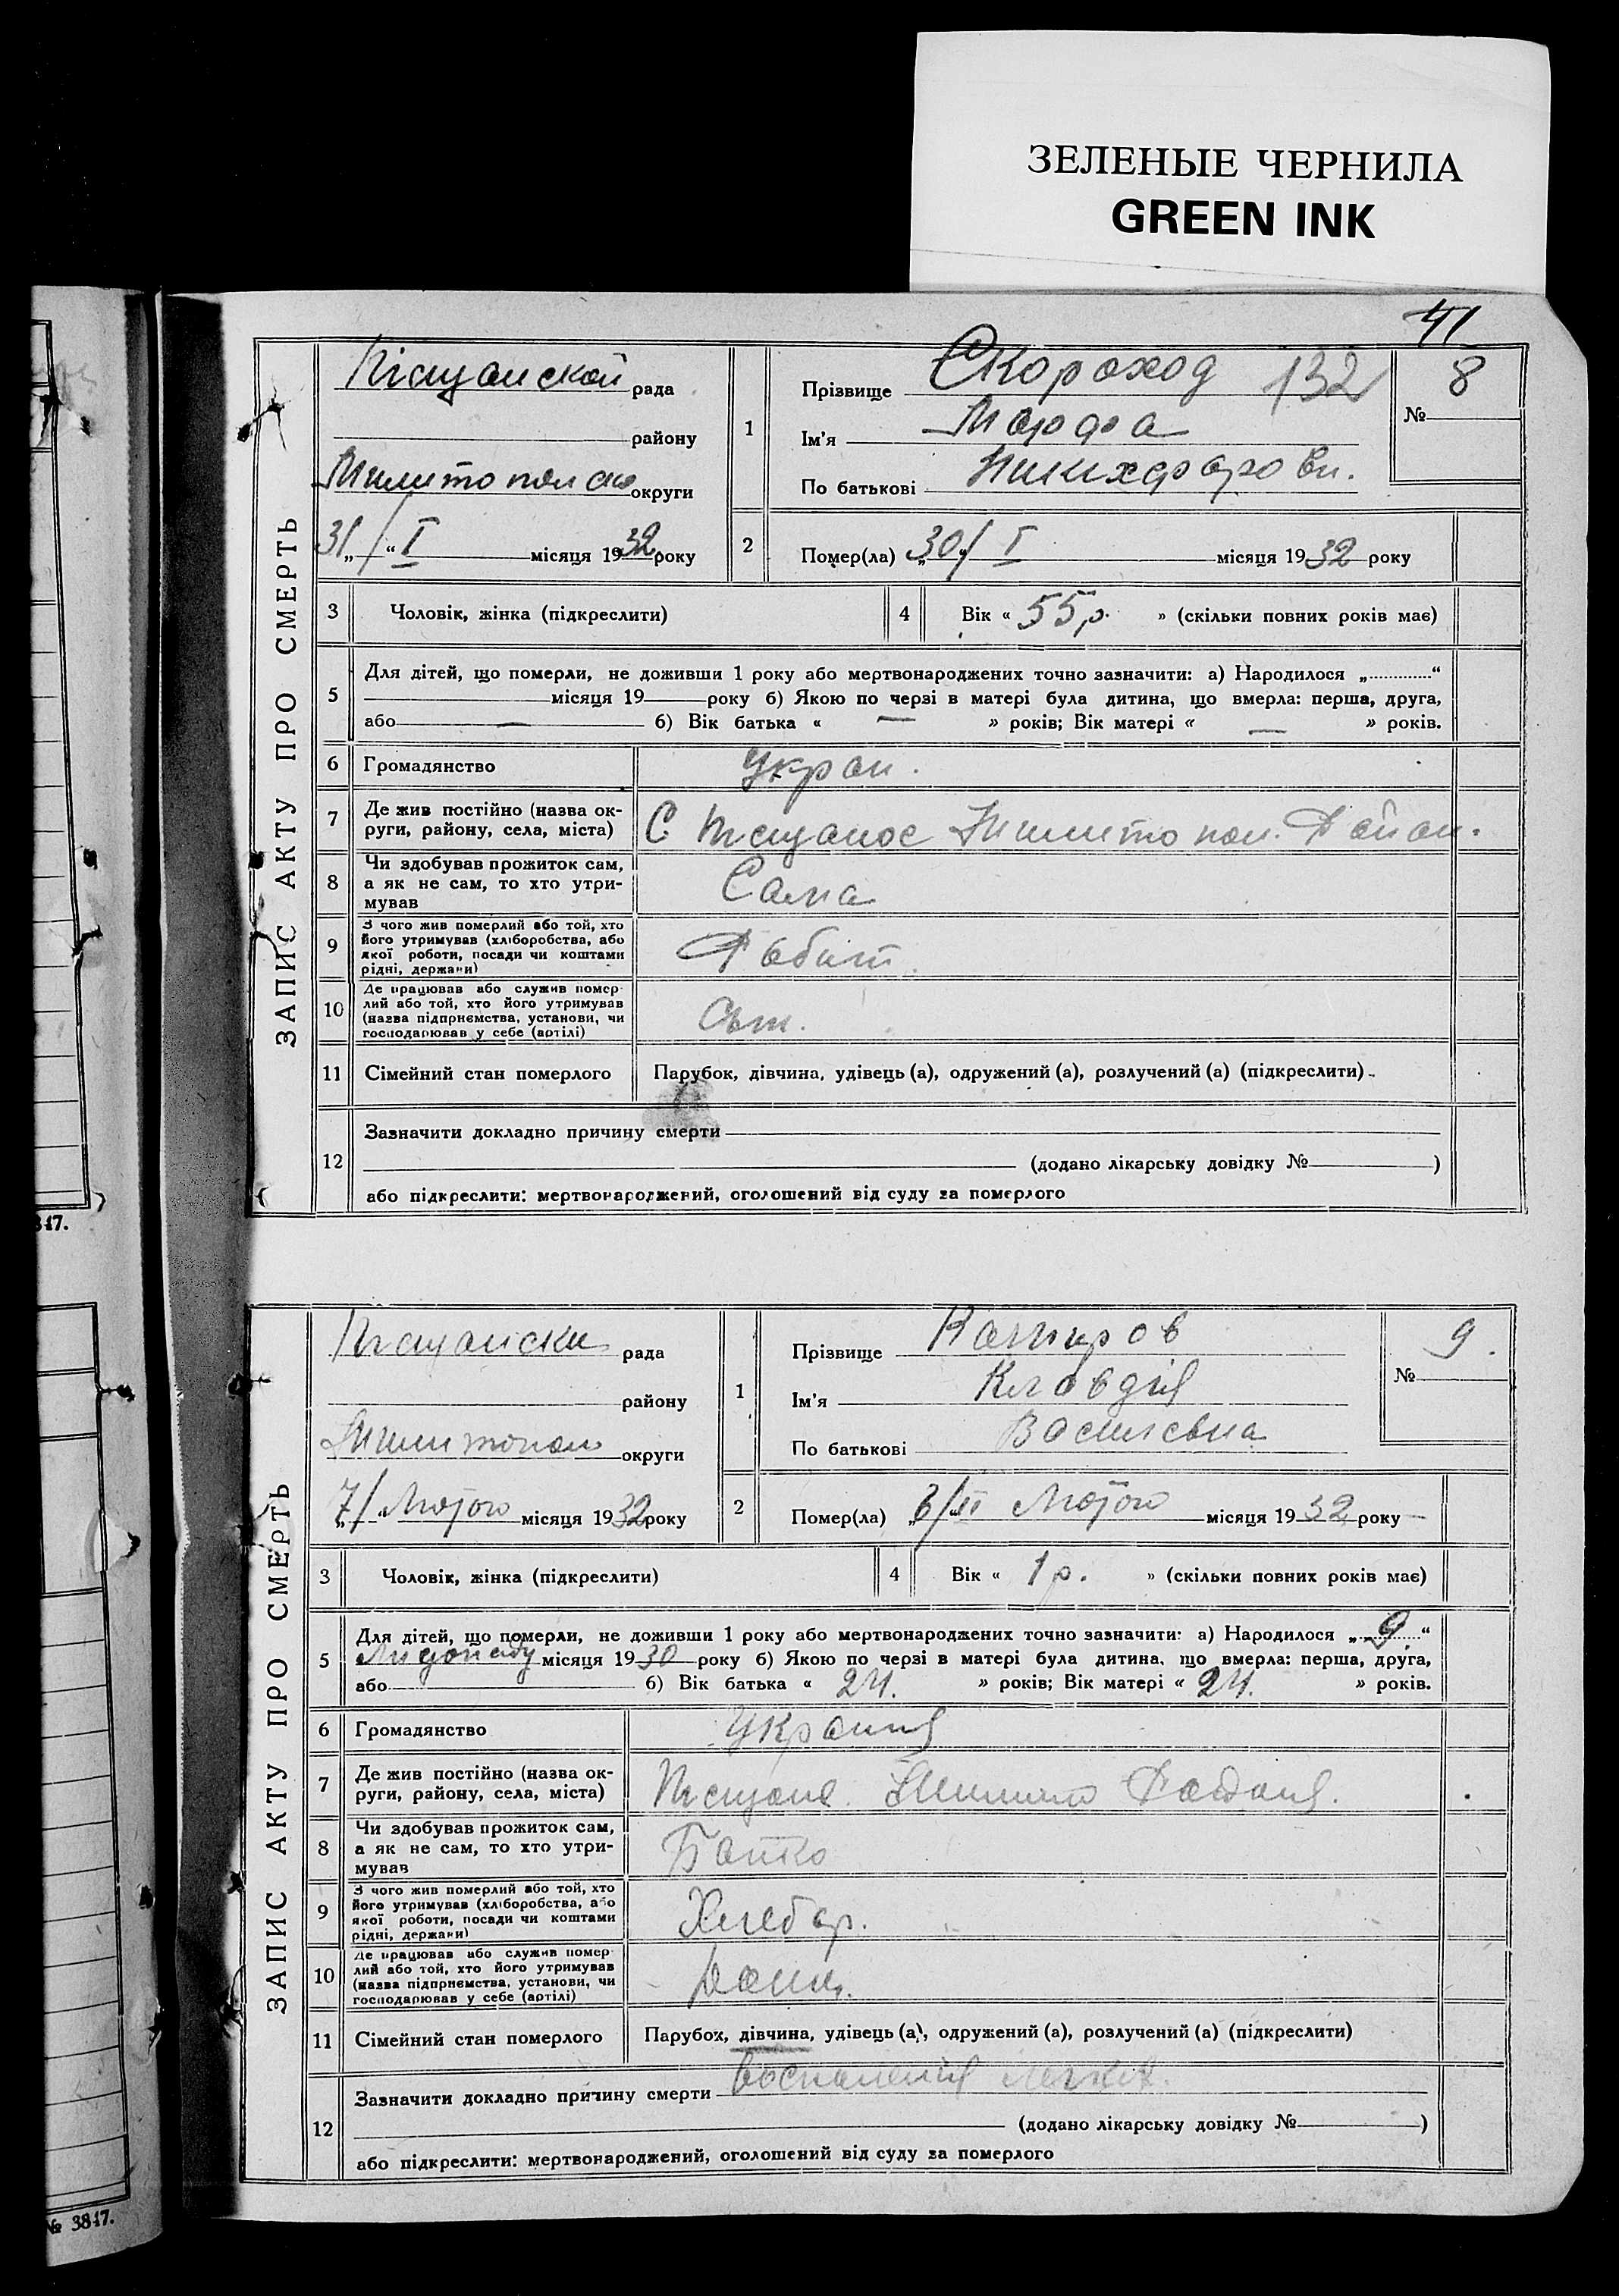 ЗЕЛЕНЫЕ ЧЕРНИЛА
GREEN INK
41
ЗАПИС АКТУ ПРО СМЕРТЬ
Піщанской рада
району
округи
31 / I місяця 1932 року
1
Прізвище Скороход 132
Ім'я Марфа
По батькові
№ 8
2
Помер(ла) „30/ I місяця 1932 року
3 Чоловік, жінка (підкреслити)
4 Вік « 55 р. » (скільки повних років має)
5
Для дітей, що померли, не доживши 1 року або мертвонароджених точно зазначити: а) Народилося „............“
місяця 19 року б) Якою по черзі в матері була дитина, що вмерла: перша, друга,
або — б) Вік батька « — » років; Вік матері « — » років.
6 Громадянство Украи.
7 Де жив постійно (назва ок-
руги, району, села, міста) С
8 Чи здобував прожиток сам,
а як не сам, то хто утри-
мував Сама
9 З чого жив померлий або той, хто
його утримував (хліборобства, або
якої роботи, посади чи коштами
рідні, держави) Робит.
10 Де працював або служив помер-
лий або той, хто його утримував
(назва підприємства, установи, чи
господарював у себе (артілі)
11 Сімейний стан померлого Парубок, дівчина, удівець (а), одружений (а), розлучений (а) (підкреслити)
12
Зазначити докладно причину смерти
(додано лікарську довідку № )
або підкреслити: мертвонароджений, оголошений від суду за померлого
347.
ЗАПИС АКТУ ПРО СМЕРТЬ
рада
району
округи
7/ Лютого місяця 1932 року
1
Прізвище
Ім'я Клавдія
По батькові Василевна
№ 9.
2
Помер(ла) „6/II Лютого місяця 1932 року
3 Чоловік, жінка (підкреслити)
4 Вік « 1 р. » (скільки повних років має)
5
Для дітей, що померли, не доживши 1 року або мертвонароджених точно зазначити: а) Народилося „ 9 “
місяця 1930 року б) Якою по черзі в матері була дитина, що вмерла: перша, друга,
або б) Вік батька « 24. » років; Вік матері « 24. » років.
6 Громадянство
7 Де жив постійно (назва ок-
руги, району, села, міста)
8 Чи здобував прожиток сам,
а як не сам, то хто утри-
мував Батко
9 З чого жив померлий або той, хто
його утримував (хліборобства, або
якої роботи, посади чи коштами
рідні, держави) Хлебор.
10 Де працював або служив помер-
лий або той, хто його утримував
(назва підприємства, установи, чи
господарював у себе (артілі)
11 Сімейний стан померлого Парубок, дівчина, удівець (а), одружений (а), розлучений (а) (підкреслити)
12
Зазначити докладно причину смерти воспаления легких.
(додано лікарську довідку № )
або підкреслити: мертвонароджений, оголошений від суду за померлого
№ 3847.